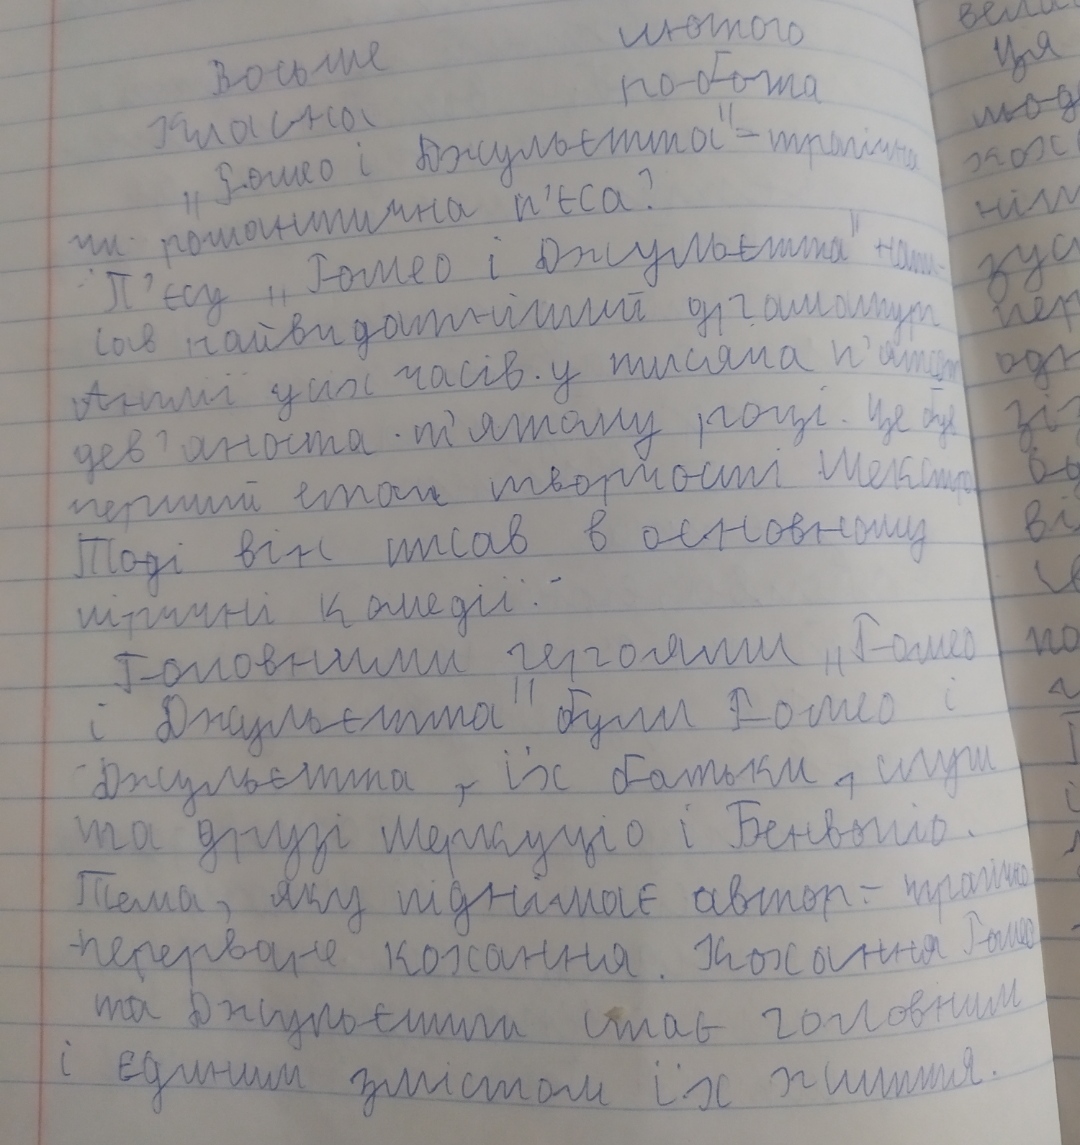 Восьме лютого
Класна робота
„Ромео і Джульєтта" - трагічна
чи романтична п'єса?
П'єсу „Ромео і Джульєтта" напи-
сав найвидатніший драматург
Англії усіх часів у тисяча п'ятсот
дев'яносто п'ятому році. Це був
перший етап творчості Шекспіра
Тоді він писав в основному
ліричні комедії.
Головними героями „Ромео
і Джульєтта" були Ромео і
Джульєтта, їх батьки, слуги
та друзі Меркуціо і Бенволіо.
Тема, яку піднімає автор - трагічно
перерване кохання. Кохання Ромео
та Джульєтти стає головним
і єдиним змістом їх життя.